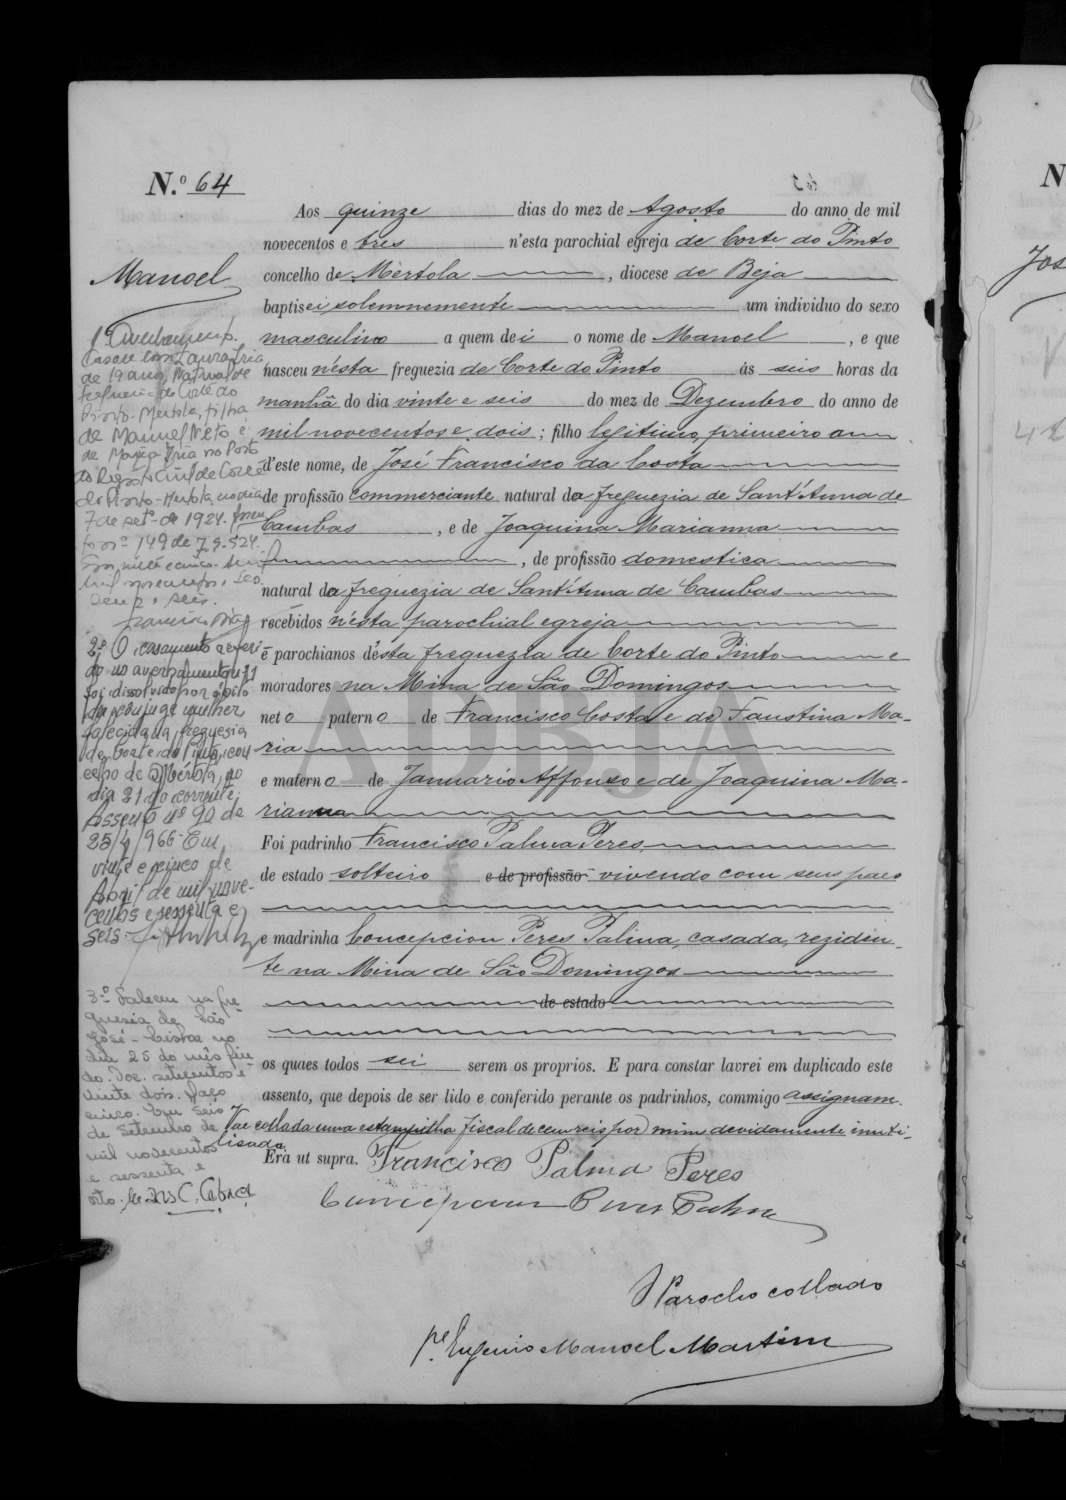 N.º 64
Manoel
Aos quinze dias do mez de Agosto do anno de mil
novecentos e tres n'esta parochial egreja de Corte do Pinto
concelho de Mertola, diocese de Beja
baptisei solemnemente um individuo do sexo
masculino a quem dei o nome de Manoel, e que
nasceu n'esta freguezia de Corte do Pinto ás seis horas da
manhã do dia vinte e seis do mez de Dezembro do anno de
mil novecentos e dois; filho legitimo, primeiro
d'este nome, de José Francisco da Costa
de profissão commerciante natural da freguezia de Sant'Anna de
Cambas, e de Joaquina Marianna
, de profissão domestica
natural da freguezia de Sant'Anna de Cambas
recebidos n'esta parochial egreja
e parochianos d'esta freguezia de Corte do Pinto e
moradores na Mina de São Domingos
neto paterno de Francisco Costa e de Faustina Ma-
ria
e materno de Januario Affonso e de Joaquina Ma-
rianna
Foi padrinho Francisco Palma Peres
de estado solteiro e de profissão vivendo com seus paes
e madrinha Concepcion Peres Palma, casada, reziden-
te na Mina de São Domingos
de estado
os quaes todos sei serem os proprios. E para constar lavrei em duplicado este
assento, que depois de ser lido e conferido perante os padrinhos, commigo assignam.
Vae collada uma estampilha fiscal de cem reis por mim devidamente inuti-
lisada
Era ut supra. Francisco Palma Peres
Concepcion Peres Palma
O Parocho collado
P.e Eugenio Manoel Martins
Casou com Laura Iria
de 19 anos, natural de
freguesia de Corte do
Pinto - Mertola, filha
de Manuel Neto e
de Maria Iria no Posto
do Registo Civil de Corte
do Pinto - Mertola no dia
7 de set.º de 1924.
nº 149 de
2.º O casamento
do no averbamento nº 1
foi dissolvido por óbito
da conjuge mulher
falecida na freguesia
de Corte do Pinto, con
celho de Mértola, no
dia 21 do corrente.
Assento nº 90 de
25/4/966. Em
vinte e cinco de
Abril de mil nove-
centos e sessenta e
seis.
3.º Faleceu na fre
guesia de São
José - Lisboa no
dia 25 do mês fin
do. Doc. setecentos e
vinte dois. Maço
cinco. Em seis
de Setembro de
mil novecentos
e sessenta e
oito.
ADBJA